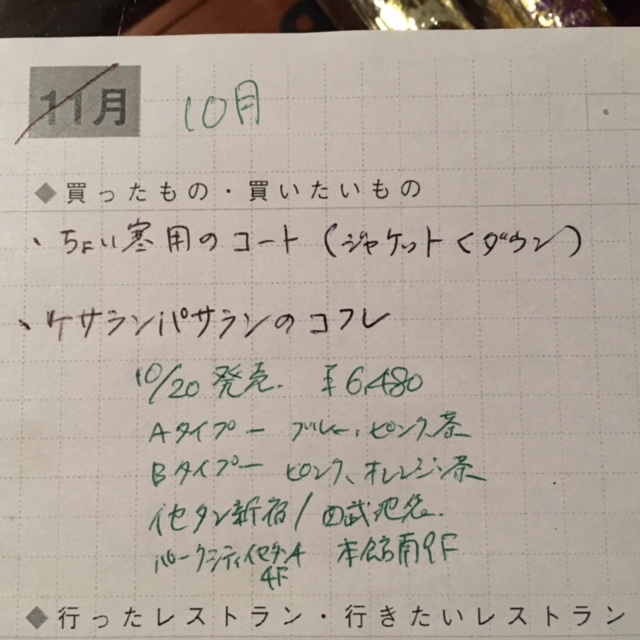 11月 10月
◆買ったもの・買いたいもの
、ちょい寒用のコート(ジャケット<ダウン)
、ケサランパサランのコフレ
10/20発売. ¥6,480
Aタイプー ブルー、ピンク、茶
Bタイプー ピンク、オレンジ、茶
イセタン新宿/西武池袋.
パークシティイセタンA 本館南9F
4F
◆行ったレストラン・行きたいレストラン